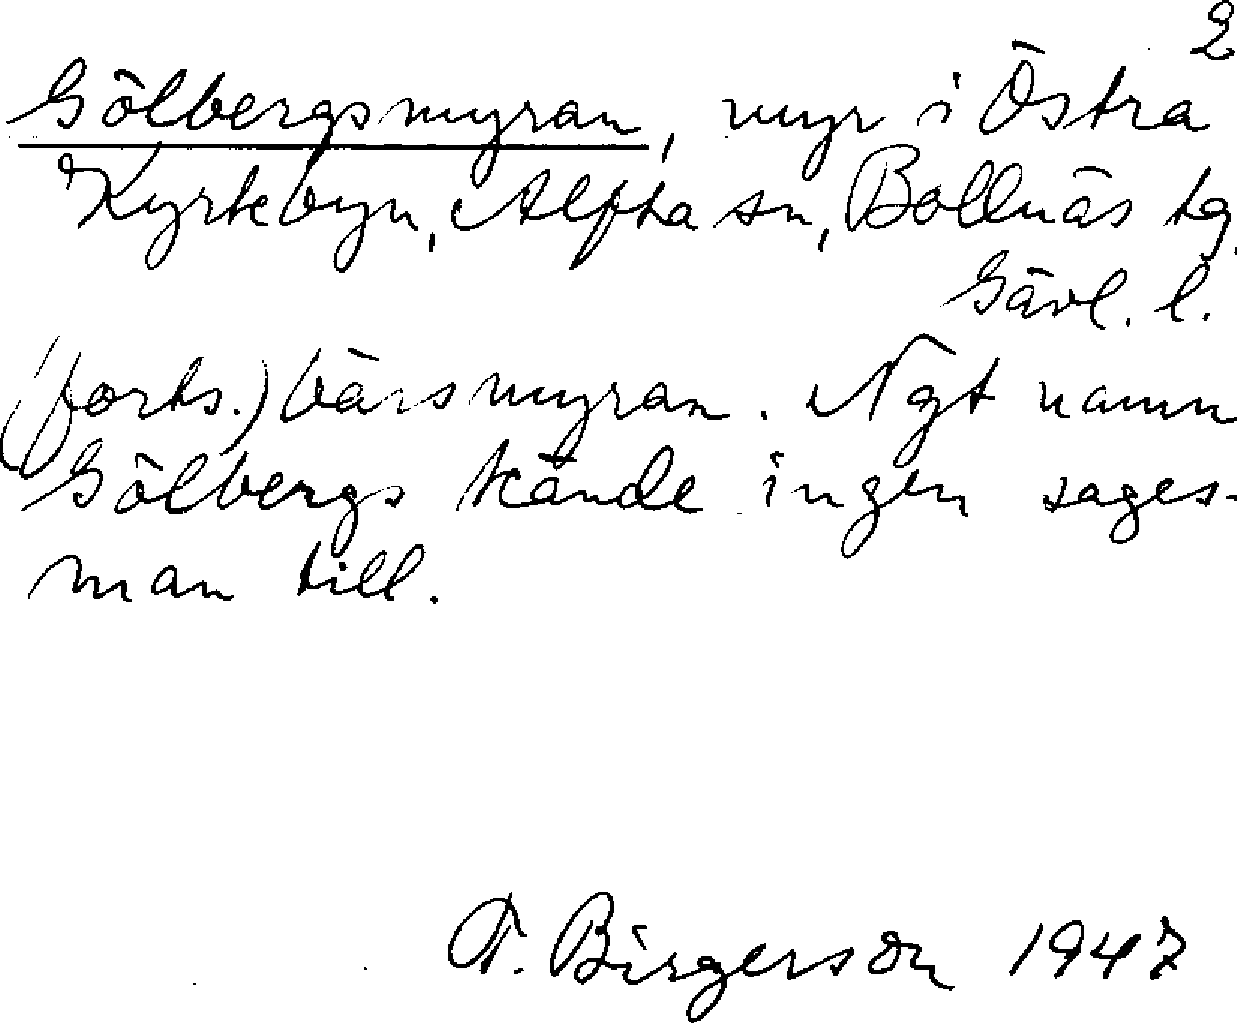 2
Gölbergsmyran, myr i Östra
Kyrkbyn, Alfta sn, Bollnäs tg
Gävl. l.
(forts.) bärsmyran. Ngt namn
Gölbergs kände ingen sages-
man till.
F. Birgerson 1947